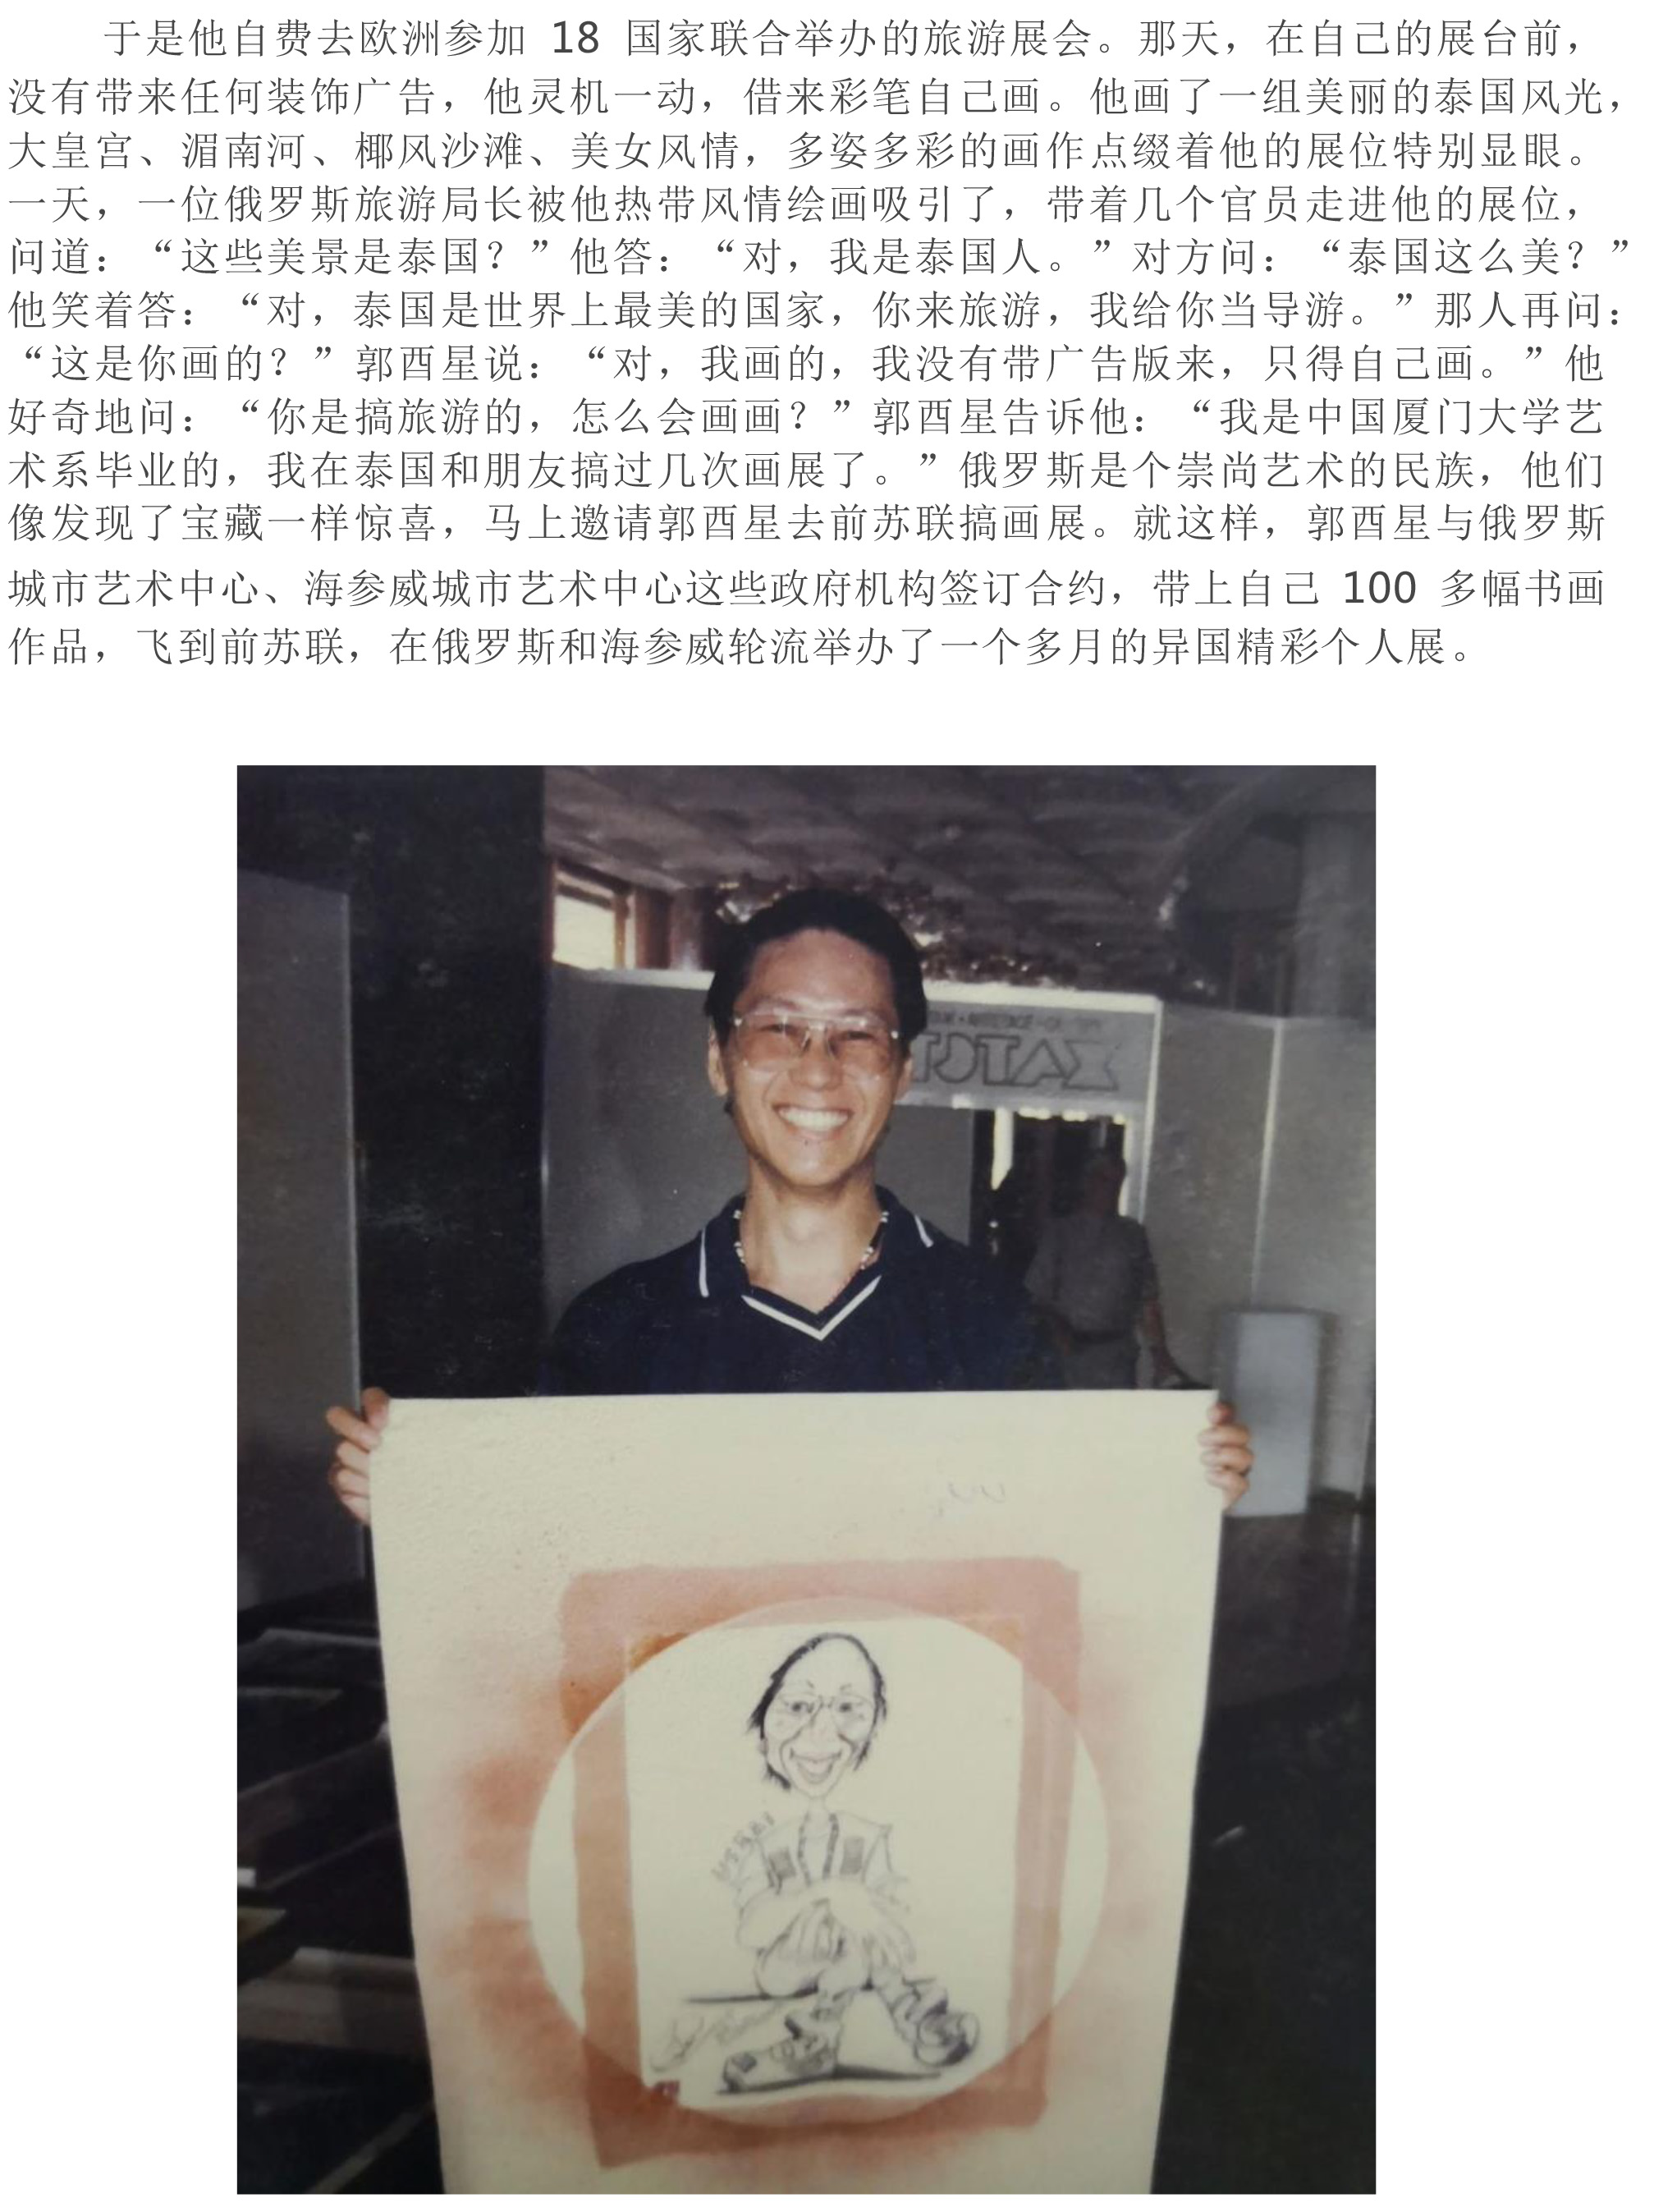 于是他自费去欧洲参加 18 国家联合举办的旅游展会。那天，在自己的展台前，
没有带来任何装饰广告，他灵机一动，借来彩笔自己画。他画了一组美丽的泰国风光，
大皇宫、湄南河、椰风沙滩、美女风情，多姿多彩的画作点缀着他的展位特别显眼。
一天，一位俄罗斯旅游局长被他热带风情绘画吸引了，带着几个官员走进他的展位，
问道：“这些美景是泰国？”他答：“对，我是泰国人。”对方问：“泰国这么美？”
他笑着答：“对，泰国是世界上最美的国家，你来旅游，我给你当导游。”那人再问：
“这是你画的？”郭酉星说：“对，我画的，我没有带广告版来，只得自己画。”他
好奇地问：“你是搞旅游的，怎么会画画？”郭酉星告诉他：“我是中国厦门大学艺
术系毕业的，我在泰国和朋友搞过几次画展了。”俄罗斯是个崇尚艺术的民族，他们
像发现了宝藏一样惊喜，马上邀请郭酉星去前苏联搞画展。就这样，郭酉星与俄罗斯
城市艺术中心、海参威城市艺术中心这些政府机构签订合约，带上自己 100 多幅书画
作品，飞到前苏联，在俄罗斯和海参威轮流举办了一个多月的异国精彩个人展。